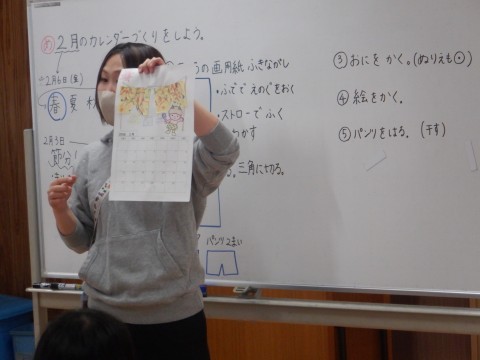 め 2月のカレンダーづくりをしよう。
2月6日(金)
春 夏 秋
2月3日
節分
の画用紙 ふきながし
・ふででえのぐをおく
・ストローでふく
かす
る。三角に切る。
パンツ2まい
③おにをかく。(ぬりえも⊙)
④絵をかく。
⑤パンツをはる。(干す)